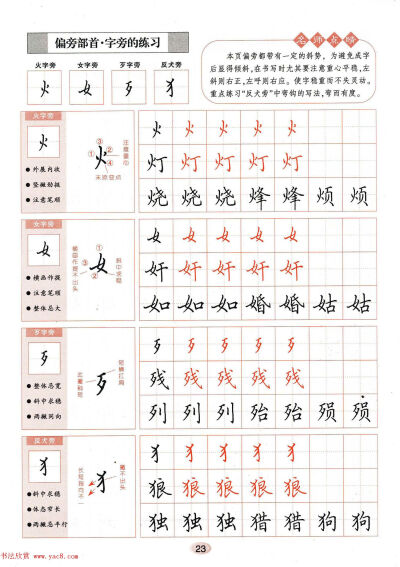 偏旁部首·字旁的练习
火字旁 女字旁 歹字旁 反犬旁
火 女 歹 犭
名师点睛
本页偏旁都带有一定的斜势，为避免成字
后显得倾斜，在书写时尤其要注意重心平稳，左
斜则右正，左呼则右应。使字稳重而不失灵动。
重点练习“反犬旁”中弯钩的写法，弯而有度。
火字旁
火
外展内收
竖撇劲挺
注意笔顺
火
①
②
③
④
注意重心
末点变点
火 火 火 火 火
灯 灯 灯 灯 灯
烧 烧 烧 烽 烽 烦 烦
女字旁
女
横画作提
注意笔顺
整体忌大
女
①
②
③
横画作提不出头
斜中求稳
女 女 女 女 女
奸 奸 奸 奸 奸
如 如 如 婚 婚 姑 姑
歹字旁
歹
整体忌宽
斜中求稳
两撇同向
歹
短横扛肩
歹 歹 歹 歹 歹
残 残 残 残 残
列 列 列 殆 殆 殒 殒
反犬旁
犭
斜中求稳
体态窄长
两撇忌平行
犭
撇不出头
长短指向不一
犭 犭 犭 犭 犭
狼 狼 狼 狼 狼
独 独 独 猎 猎 狗 狗
23
书法欣赏
www.yac8.com